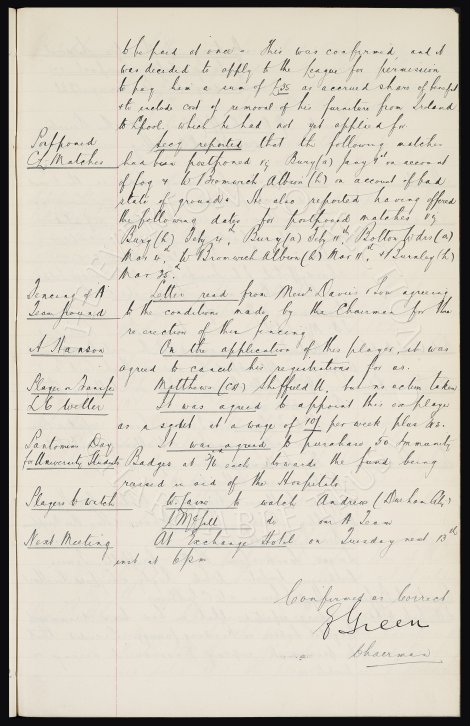 to be paid at once. This was confirmed, and it
was decided to apply to the League for permission
to pay him a sum of £35 as accrued share of benefit
& to include cost of removal of his furniture from Ireland
to L'pool, which he had not yet applied for.
Postponed
CL Matches
Secy reported that the following matches
had been postponed viz Bury (a) Jany 9th on account
of fog & W Bromwich Albion (h) on account of bad
state of ground. He also reported having offered
the following dates for postponed matches viz
Bury (h) Feby , Bury (a) Feby 11th, Bolton Wdrs (a)
Mar , W Bromwich Albion (h) Mar 11th & Burnley (h)
Mar 25th.
Fencing of A
Team ground
Letter read from Messrs Davies & Son agreeing
to the conditions made by the Chairman for the
re erection of this fencing
A. Hanson
On the application of this player, it was
agreed to cancel his registrations for us.
Player on Transfer
Matthews (CH) Sheffield U, but no action taken
It was agreed to appoint this ex player
as a at a wage of 10/- per week plus
Pantomime Day
for University Students
It was agreed to purchase 50 Immunity
Badges at each towards the fund being
raised in aid of the Hospitals
Players to watch
to watch Andrew (Durham City)
do our A Team
Next Meeting
At Exchange Hotel on Tuesday next 13th
inst at 6pm
Confirmed as Correct
E Green
Chairman